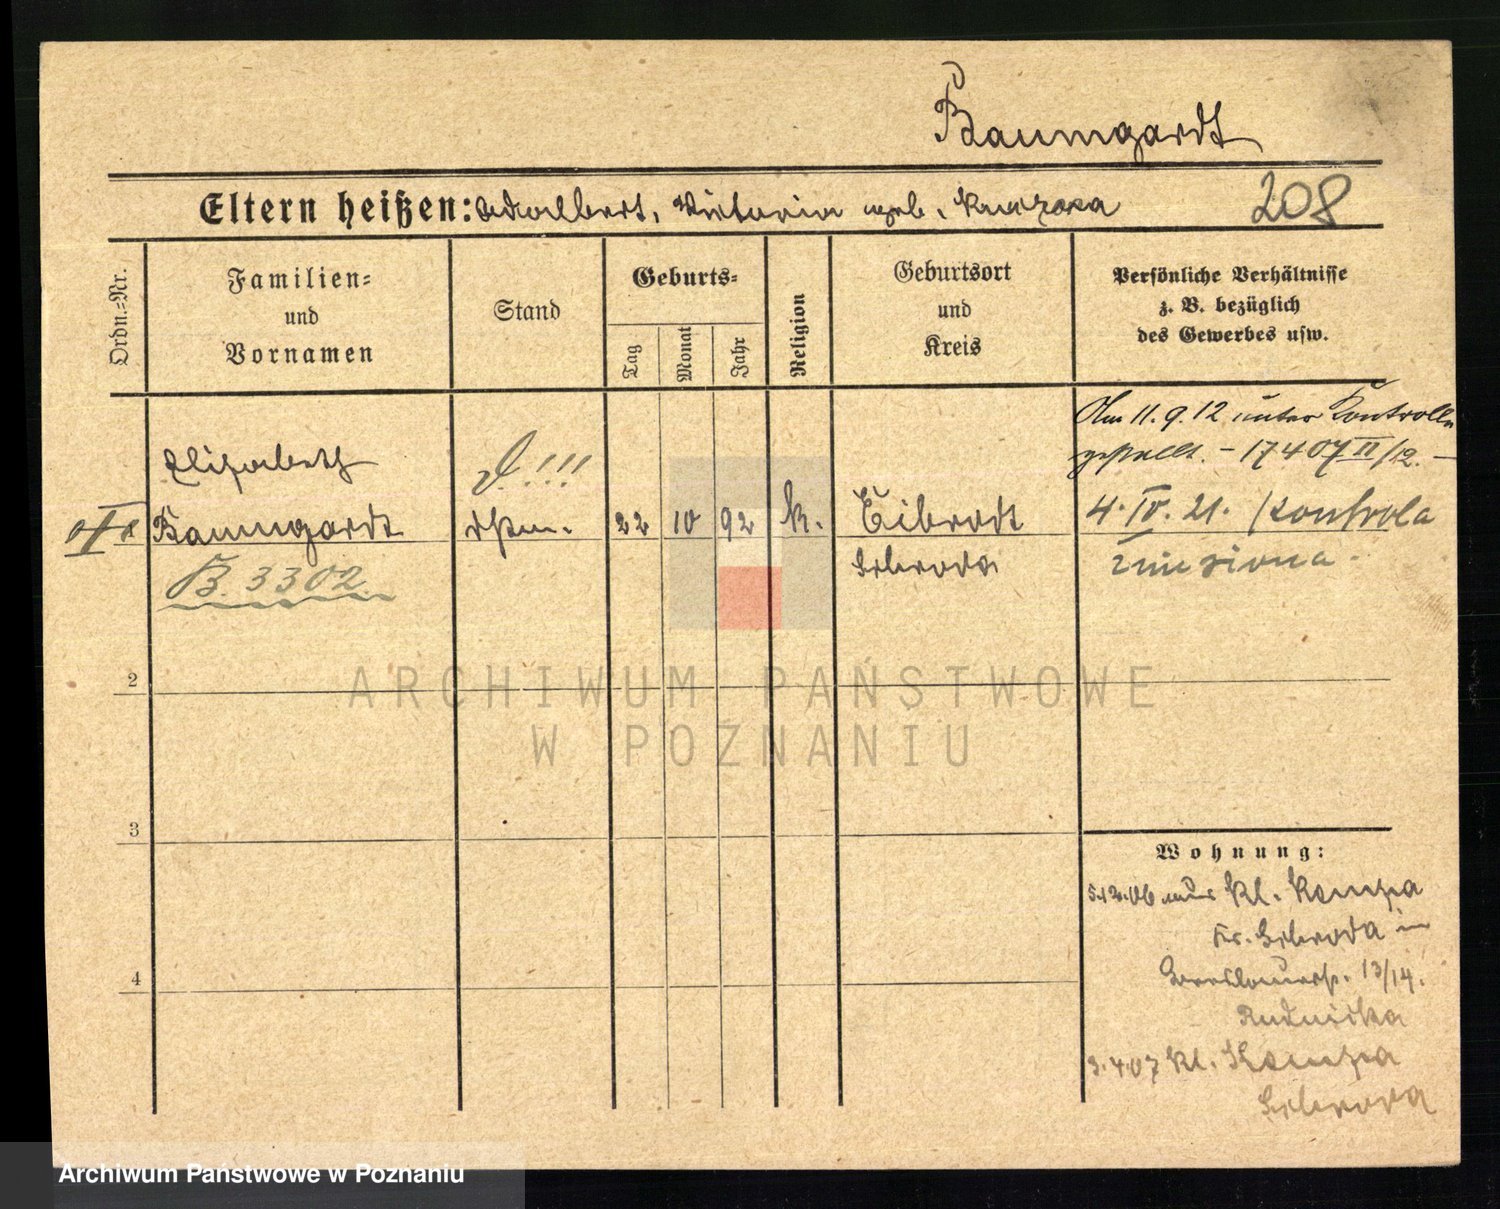 Baumgardt
Eltern heißen: Adalbert, Viktoria geb. 
208
Ordn.=Nr.
Familien=
und
Vornamen
Stand
Geburts=
Tag
Monat
Jahr
Religion
Geburtsort
und
Kreis
Persönliche Verhältnisse
z. B. bezüglich
des Gewerbes usw.
Am 11.9.12 unter Kontrolle
gestellt. – 17407 II/12. –
Elisabeth
D!!!
Baumgardt
22
10
92
k.
4. IV. 21. Kontrola
B. 3302.
Schroda
zniesiona.
2
3
4
Wohnung:
5.12.06 aus Kl.
Kr. Schroda in
13/14.
Rudnicka
3.4.07 Kl.
Schroda
ARCHIWUM PAŃSTWOWE
W POZNANIU
Archiwum Państwowe w Poznaniu